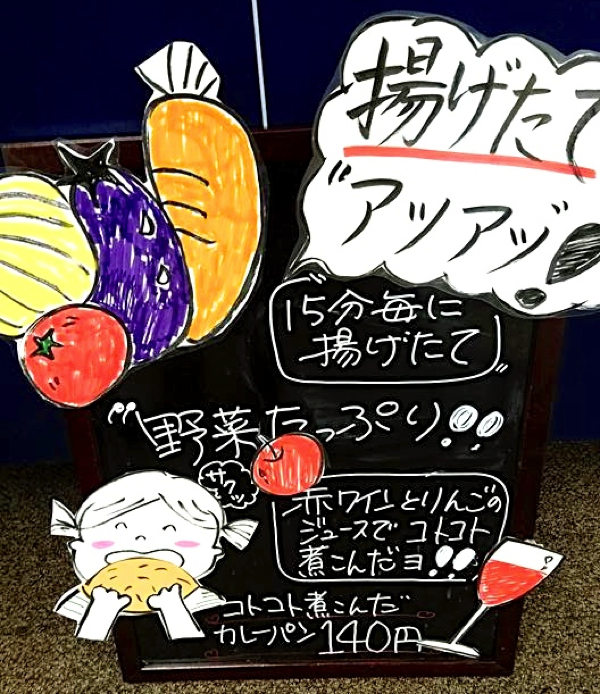 揚げたて
"アツアツ"!
15分毎に
揚げたて
"野菜たっぷり!!
サクッ
赤ワインとりんごの
ジュースでコトコト
煮こんだヨ!!
コトコト煮こんだ
カレーパン140円